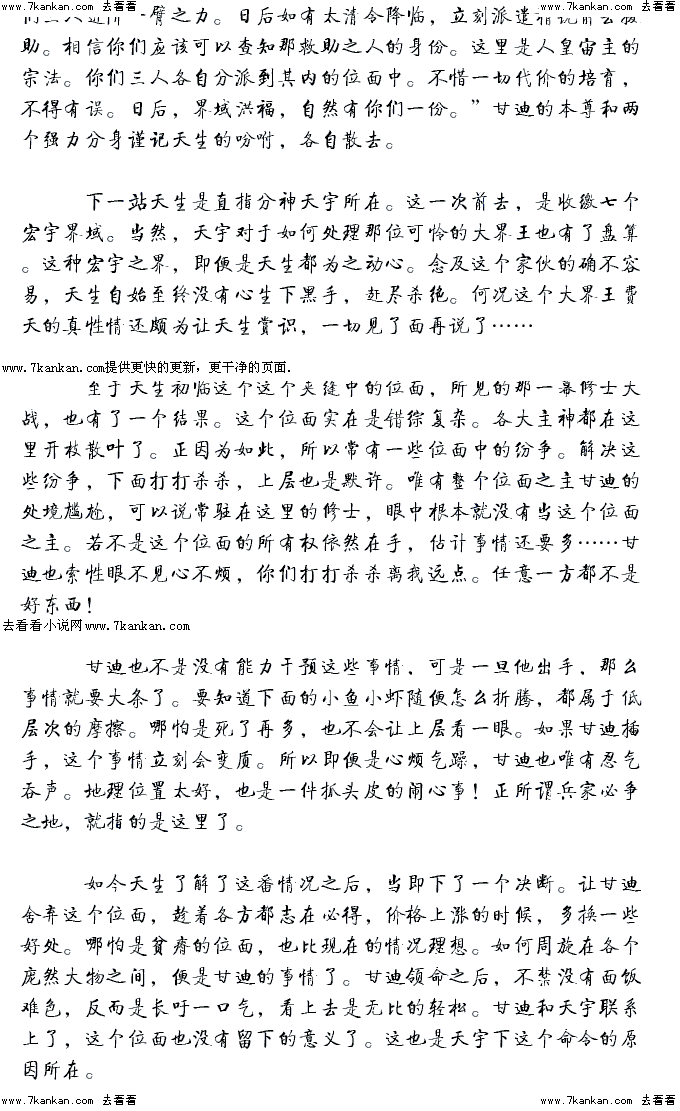 www.7kankan.com 去看看 www.7kankan.com 去看看
们三人近情一臂之力。日后如有太清令降临，立刻派遣精锐前去救
助。相信你们应该可以查知那救助之人的身份。这里是人皇宙主的
宗法。你们三人各自分派到其内的位面中。不惜一切代价的培育，
不得有误。日后，界域洪福，自然有你们一份。”甘迪的本尊和两
个强力分身谨记天生的吩咐，各自散去。
下一站天生是直指分神天宇所在。这一次前去，是收徽七个
宏宇界域。当然，天宇对于如何处理那位可怜的大界王也有了盘算
。这种宏宇之界，即便是天生都为之动心。念及这个家伙的确不容
易，天生自始至终没有心生下黑手，赶尽杀绝。何况这个大界王费
天的真性情还颇为让天生赏识，一切见了面再说了……
www.7kankan.com提供更快的更新，更干净的页面.
至于天生初临这个这个夹缝中的位面，所见的那一幕修士大
战，也有了一个结果。这个位面实在是错综复杂。各大主神都在这
里开枝散叶了。正因为如此，所以常有一些位面中的纷争。解决这
些纷争，下面打打杀杀，上层也是默许。唯有整个位面之主甘迪的
处境尴尬，可以说常驻在这里的修士，眼中根本就没有当这个位面
之主。若不是这个位面的所有权依然在手，估计事情还要多……甘
迪也索性眼不见心不烦，你们打打杀杀离我远点。任意一方都不是
好东西！
去看看小说网www.7kankan.com
甘迪也不是没有能力干预这些事情，可是一旦他出手，那么
事情就要大条了。要知道下面的小鱼小虾随便怎么折腾，都属于低
层次的摩擦。哪怕是死了再多，也不会让上层看一眼。如果甘迪插
手，这个事情立刻会变质。所以即便是心烦气躁，甘迪也唯有忍气
吞声。地理位置太好，也是一件抓头皮的闹心事！正所谓兵家必争
之地，就指的是这里了。
如今天生了解了这番情况之后，当即下了一个决断。让甘迪
舍弃这个位面，趁着各方都志在必得，价格上涨的时候，多换一些
好处。哪怕是贫瘠的位面，也比现在的情况理想。如何周旋在各个
庞然大物之间，便是甘迪的事情了。甘迪领命之后，不禁没有面饭
难色，反而是长吁一口气，看上去是无比的轻松。甘迪和天宇联系
上了，这个位面也没有留下的意义了。这也是天宇下这个命令的原
因所在。
www.7kankan.com 去看看 www.7kankan.com 去看看